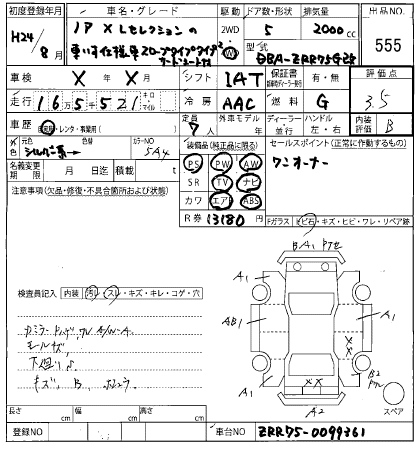 初度登録年月 車名・グレード 駆動 ドア数・形状 排気量 出品NO.
H24/8月 IP XLセレクションの 2WD 5 2000cc 555
車いす仕様車スロープタイプタイプ
型式 DBA-ZRR75G改
車検 X年 X月 シフト IAT 保証書 有・無 評価点
走行 165521 キロ・マイル 冷房 AAC 燃料 G 3.5
車歴 自家用・レンタ・事業用( ) 定員 7人 外車モデル 年 ディーラー・並行 ハンドル 左・右 内装評価 B
外色 元色 シルバー系 色替 カラーNO 5A4
装備品(純正品に限る) セールスポイント(正常に作動するもの)
PS PW AW ワンオーナー
SR TV ナビ
カワ エアB ABS
名義変更期限 月 日迄 積載 t
R券 13180円
注意事項(欠品・修復・不具合箇所および状態)
Fガラス (トビ石・キズ・ヒビ・ワレ・リペア跡)
BA1 PタE
A1 A1
検査員記入 内装 (汚レ・スレ・キズ・キレ・コゲ・穴)
AB1 A1
XX
B2
XX
A1
A2 スペア
キズ、B、
長さ cm 幅 cm 高さ cm
登録NO 車台NO ZRR75-0099361